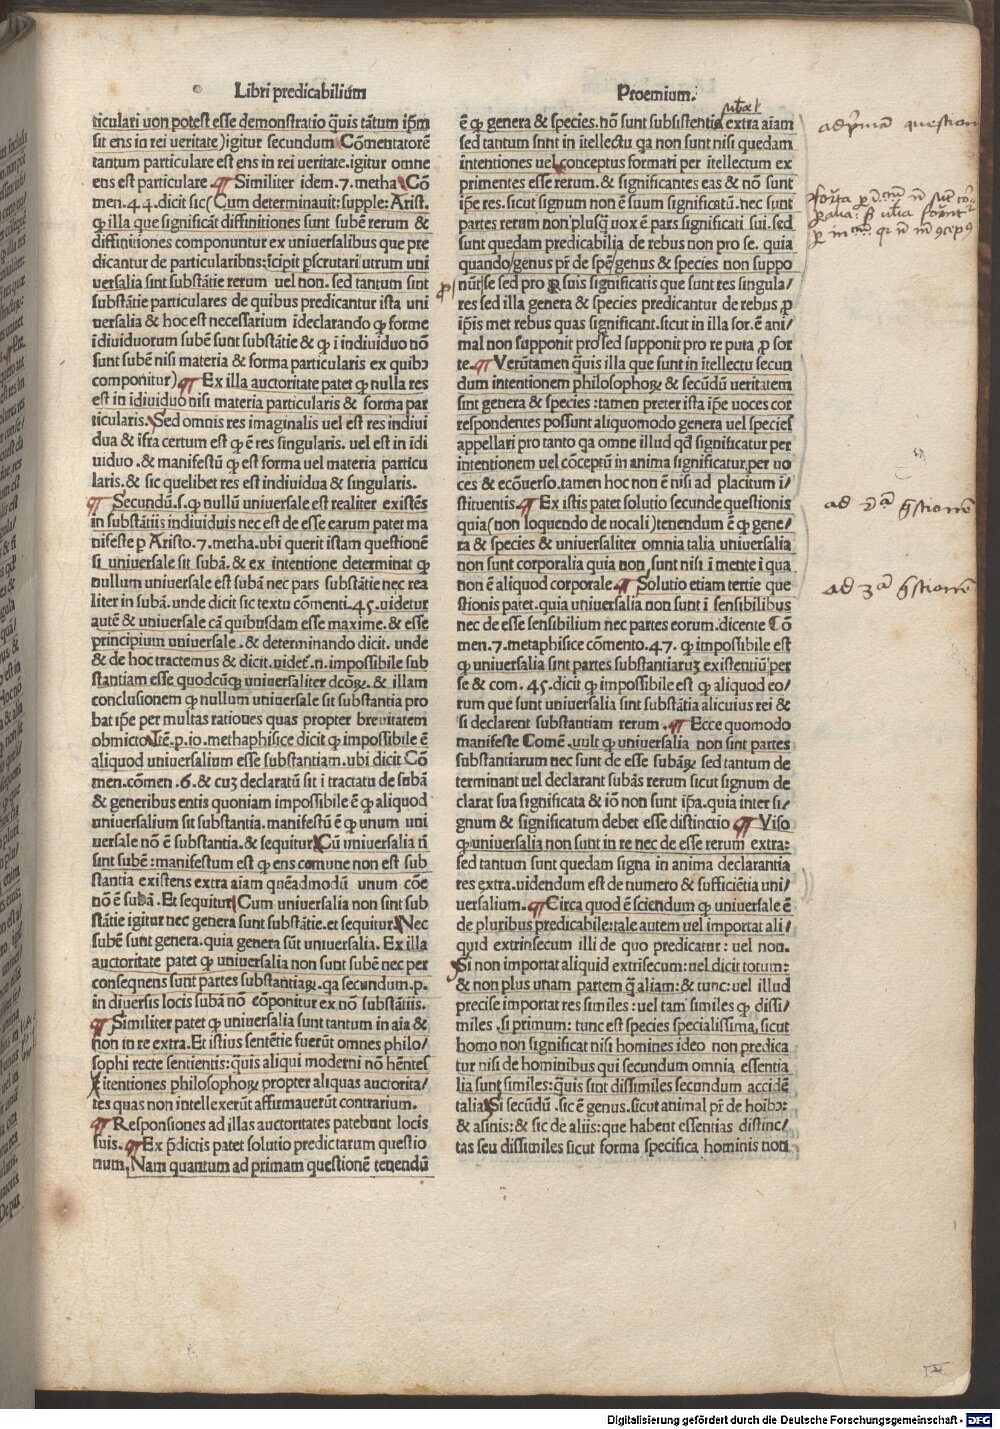 Libri predicabilium
ticulari uon potest esse demonstratio q̃uis tãtum ip̃m
sit ens in rei ueritate)igitur secundum Cõmentatorẽ
tantum particulare est ens in rei ueritate.igitur omne
ens est particulare ¶ Similiter idem.7.metha Cõ
men.44.dicit sic(Cum determinauit:supple:Arist.
ꝙ illa que significãt diffinitiones sunt subẽ rerum &
diffinitiones componuntur ex uniuersalibus que pre
dicantur de particularibns:ĩcipit p̃scrutari utrum uni
uersalia sint substãtie rerum uel non.sed tantum sint
substãtie particulares de quibus predicantur ista uni
uersalia & hoc est necessarium ĩdeclarando ꝙ forme
ĩdiuiduorum subẽ sunt substãtie & ꝙ ĩ indiuiduo nõ
sunt subẽ nisi materia & forma particularis ex quibꝰ
componitur) ¶ Ex illa auctoritate patet ꝙ nulla res
est in idiuiduo nisi materia particularis & forma par
ticularis. Sed omnis res imaginalis uel est res indiui
dua & ĩfra certum est ꝙ ẽ res singularis. uel est in ĩdi
uiduo .& manifestũ ꝙ est forma uel materia particu
laris.& sic quelibet res est indiuidua & singularis.
¶ Secundũ.s.ꝙ nullũ uniuersale est realiter existẽs
in substãtiis indiuiduis nec est de esse earum patet ma
nifeste p Aristo.7.metha.ubi querit istam questionẽ
si uniuersale sit subã.& ex intentione determinat ꝙ
nullum uniuersale est subã nec pars substãtie nec rea
liter in subã.unde dicit sic textu cõmenti.45.uidetur
autẽ & uniuersale cã quibusdam esse maxime.& esse
principium uniuersale .& determinando dicit. unde
& de hoc tractemus & dicit.uidet̃.n.impossibile sub
stantiam esse quodcũqꝫ uniuersaliter dcõꝝ.& illam
conclusionem ꝙ nullum uniuersale sit substantia pro
bat ip̃e per multas rationes quas propter breuitatem
obmicto Itẽ.p.io.methaphisice dicit ꝙ impossibile ẽ
aliquod uniuersalium esse substantiam.ubi dicit Cõ
men.cõmen.6.& cuꝫ declaratũ sit ĩ tractatu de subã
& generibus entis quoniam impossibile ẽ ꝙ aliquod
uniuersalium sit substantia.manifestũ ẽ ꝙ unum uni
uersale nõ ẽ substantia.& sequitur Cũ uniuersalia ñ
sint subẽ:manifestum est ꝙ ens comune non est sub
stantia existens extra aĩam quẽadmodũ unum cõe
nõ ẽ subã .Et sequitur Cum uniuersalia non sint sub
stãtie igitur nec genera sunt substãtie.et sequitur Nec
subẽ sunt genera.quia genera sũt uniuersalia. Ex illa
auctoritate patet ꝙ uniuersalia non sunt subẽ nec per
conseqnens sunt partes substantiaꝝ.qa secundum.p.
in diuersis locis subã nõ cõponitur ex nõ substãtiis.
¶ Similiter patet ꝙ uniuersalia sunt tantum in aĩa &
non in re extra.Et istius sentẽtie fuerũt omnes philo/
sophi recte sentientis:q̃uis aliqui moderni nõ hẽntes
ĩtentiones philosophoꝝ propter aliquas auctorita/
tes quas non intellexerũt affirmauerũt contrarium.
¶ Responsiones ad illas auctoritates patebunt locis
suis. ¶ Ex p̃dictis patet solutio predictarum questio
num. Nam quantum ad primam questionẽ tenendũ
Proemium.
ẽ ꝙ genera & species.nõ sunt subsistentia extra aĩam
sed tantum snnt in ĩtellectu qa non sunt nisi quedam
ĩntentiones uel conceptus formati per ĩtellectum ex
primentes esse rerum.& significantes eas & nõ sunt
ip̃e res.sicut signum non ẽ suum significatũ.nec sunt
partes rerum non plusq̃ uox ẽ pars significati sui.sed
sunt quedam predicabilia de rebus non pro se. quia
quando genus pr̃ de spẽ genus & species non suppo
nũt se sed pro suis significatis que sunt res singula/
res sed illa genera & species predicantur de rebus ꝓ
ip̃is met rebus quas significant.sicut in illa sor.ẽ ani/
mal non supponit pro sed supponit pro re puta ꝓ sor
te. ¶ Verũtamen q̃uis illa que sunt in ĩtellectu secun
dum intentionem philosophoꝝ & secũdũ ueritatem
sint genera & species:tamen preter ista ip̃e uoces cor
respondentes possunt aliquomodo genera uel species
appellari pro tanto qa omne illud qd̃ significatur per
intentionem uel cõceptũ in anima significatur.per uo
ces & ecõuerso.tamen hoc non ẽ nisi ad placitum ĩ/
stituentis. ¶ Ex istis patet solutio secunde questionis
quia(non loquendo de uocali)tenendum ẽ ꝙ gene/
ra & species & uniuersaliter omnia talia uniuersalia
non sunt corporalia quia non sunt nisi ĩ mente ĩ qua
non ẽ aliquod corporale ¶ Solutio etiam tertie que
stionis patet.quia uniuersalia non sunt ĩ sensibilibus
nec de esse sensibilium nec partes eorum.dicente Cõ
men.7.metaphisice cõmento.47.ꝙ impossibile est
ꝙ uniuersalia sint partes substantiaruꝫ existentiũ per
se & com.45.dicit ꝙ impossibile est ꝙ aliquod eo/
rum que sunt uniuersalia sint substãtia alicuius rei &
si declarent substantiam rerum . ¶ Ecce quomodo
manifeste Comẽ .uult ꝙ uniuersalia non sint partes
substantiarum nec sunt de esse subãꝝ sed tantum de
terminant uel declarant subãs rerum sicut signum de
clarat sua significata & iõ non sunt ip̃a.quia inter si/
gnum & significatum debet esse distinctio ¶ Viso
ꝙ uniuersalia non sunt in re nec de esse rerum extra:
sed tantum sunt quedam signa in anima declarantia
res extra.uidendum est de numero & sufficiẽtia uni/
uersalium. ¶ Circa quod ẽ sciendum ꝙ uniuersale ẽ
de pluribus predicabile:tale autem uel importat ali/
quid extrinsecum illi de quo predicatur: uel non.
Si non importat aliquid extrĩsecum:uel dicit totum:
& non plus unam partem q̃ aliam:& tunc:uel illud
precise importat res similes :uel tam similes ꝙ dissi/
miles .si primum: tunc est species specialissima, sicut
homo non significat nisi homines ideo non predica
tur nisi de hominibus qui secundum omnia essentia
lia sunt similes:q̃uis sint dissimiles secundum accidẽ
talia Si secũdũ .sic ẽ genus.sicut animal pr̃ de hoĩbꝰ:
& asinis:& sic de aliis:que habent essentias distinc/
tas seu dissimiles sicut forma specifica hominis non
ad primam question
ad 2ã q̃stionẽ
ad 3ã q̃stionẽ
Digitalisierung gefördert durch die Deutsche Forschungsgemeinschaft - DFG